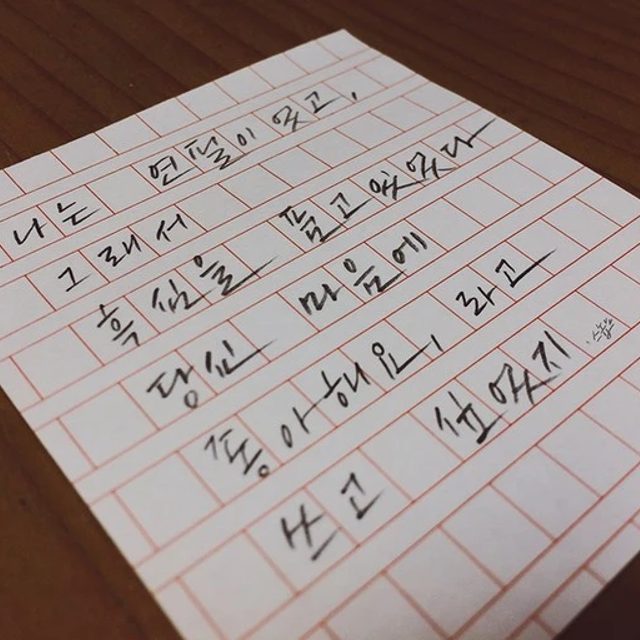 나는 연필이 었고,
그래서
흑심을 품고있었다
당신 마음에
좋아해요, 라고
쓰고 싶었지